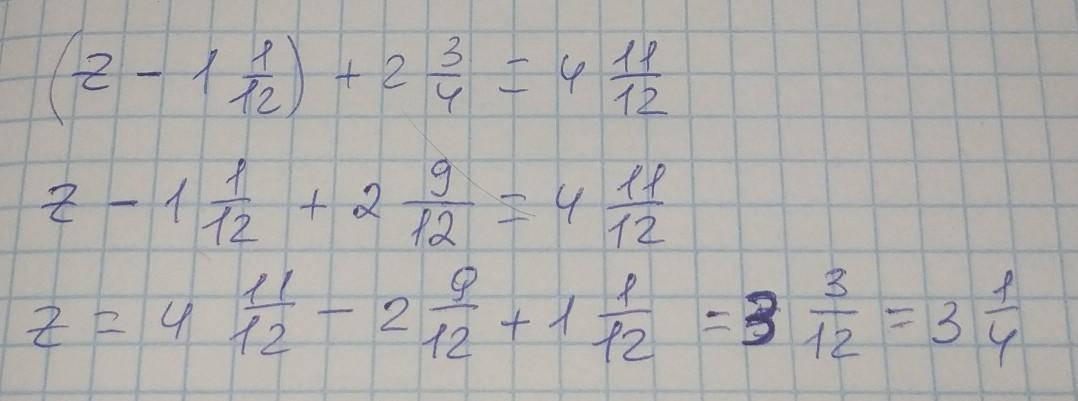 (z - 1 1/12) + 2 3/4 = 4 11/12
z - 1 1/12 + 2 9/12 = 4 11/12
z = 4 11/12 - 2 9/12 + 1 1/12 = 3 3/12 = 3 1/4